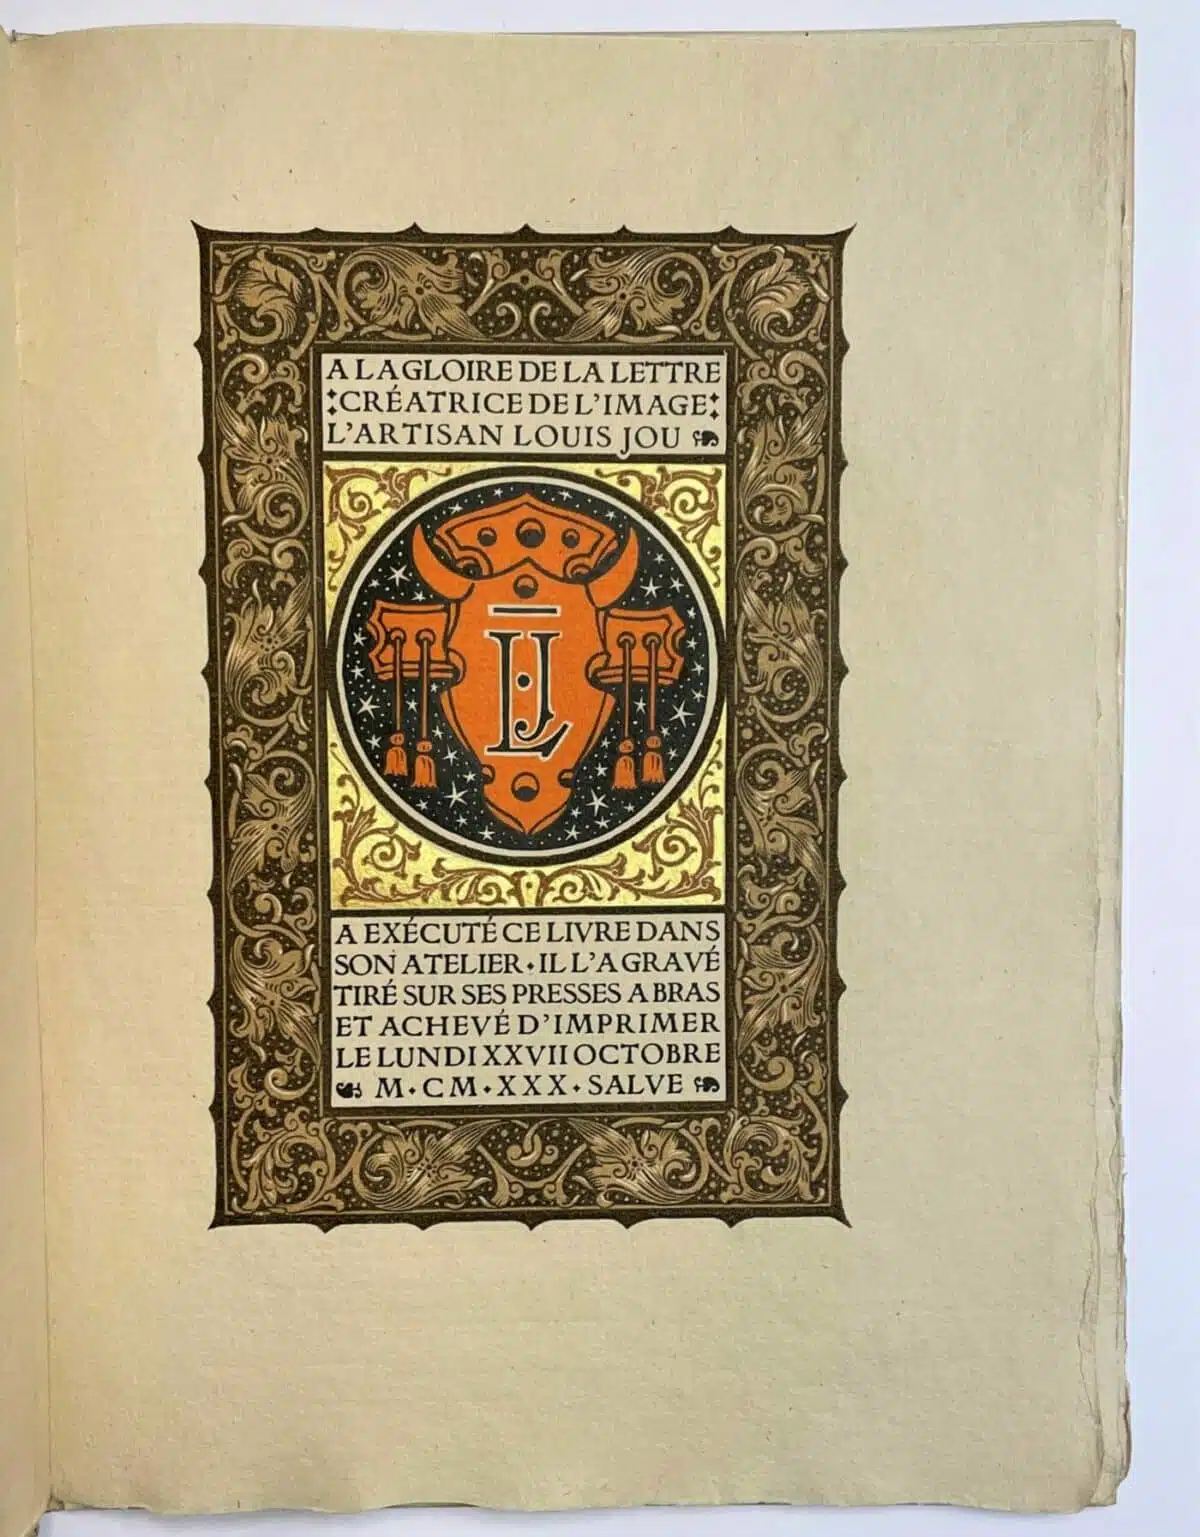 A LA GLOIRE DE LA LETTRE
CRÉATRICE DE L'IMAGE
L'ARTISAN LOUIS JOU
LJ
A EXÉCUTÉ CE LIVRE DANS
SON ATELIER · IL L'A GRAVÉ
TIRÉ SUR SES PRESSES A BRAS
ET ACHEVÉ D'IMPRIMER
LE LUNDI XXVII OCTOBRE
M · CM · XXX · SALVE